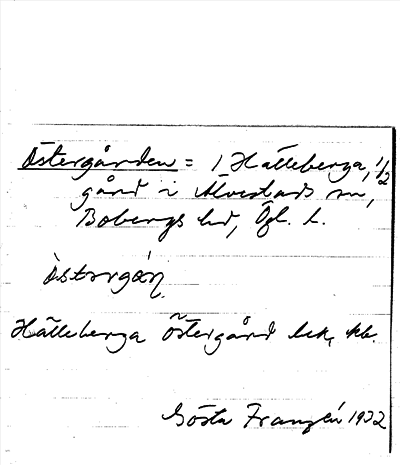 Östergården = 1 Hälleberga, 1/2
gård i Älvestads sn,
Bobergs hd, Ögl. l.
östərgáɳ
Hälleberga Östergård lek, kb.
Gösta Franzén 1932